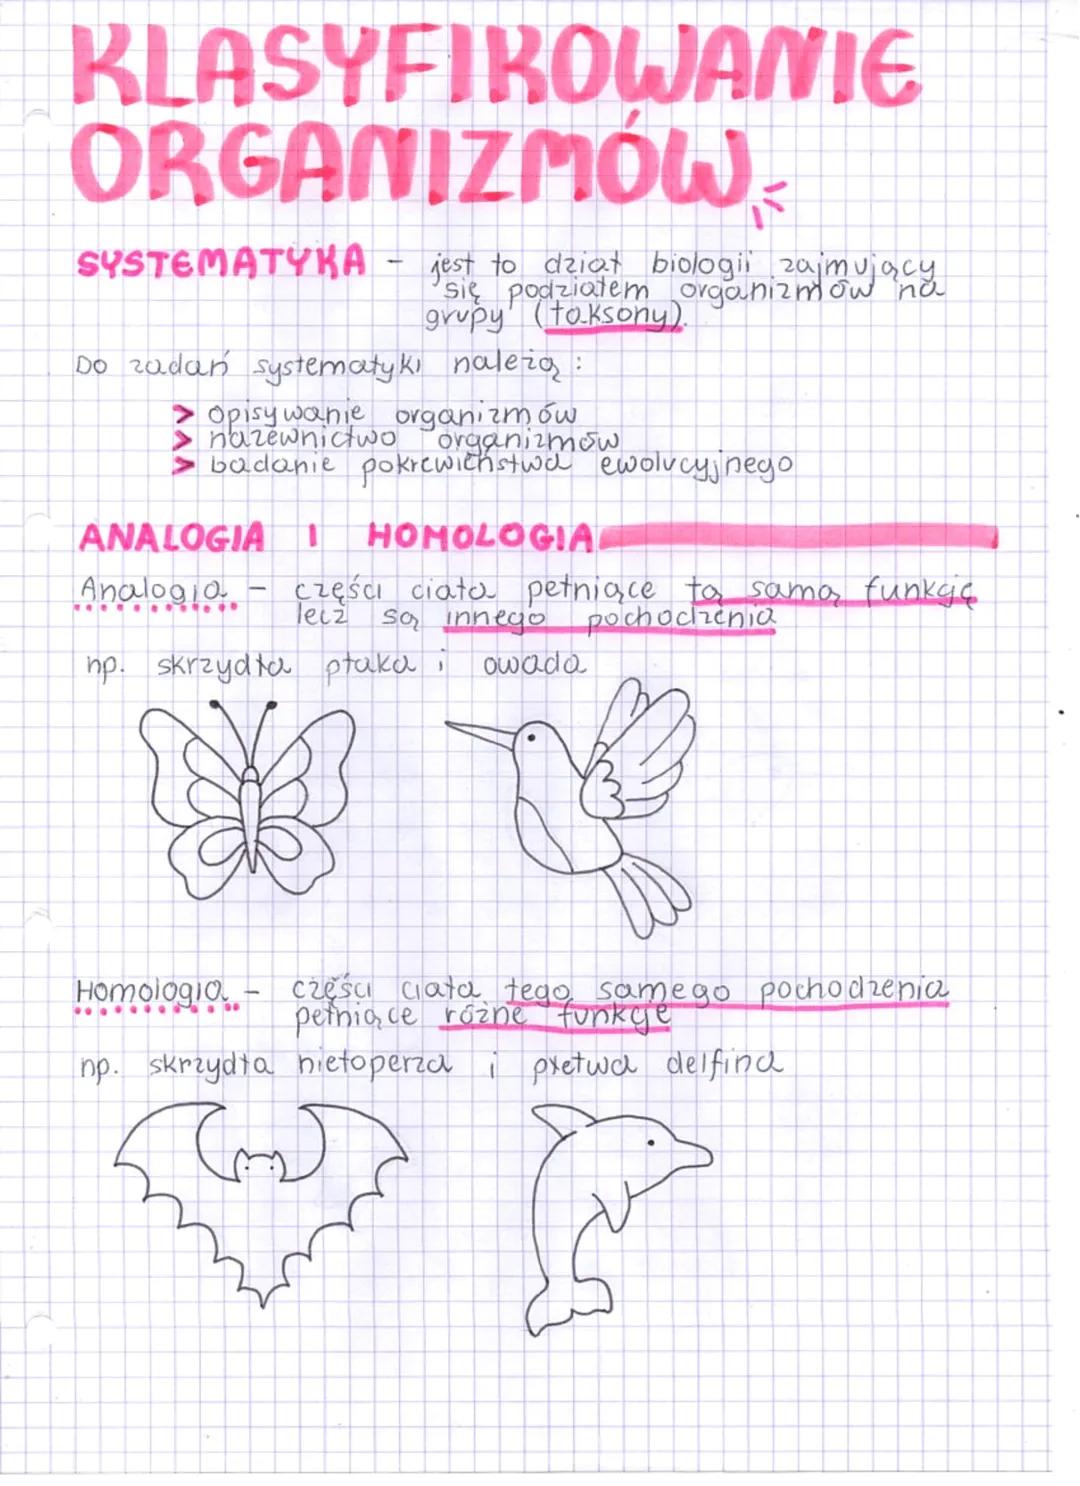 KLASYFIKOWANIE
ORGANIZMÓW
SYSTEMATYKA - jest to dział biologii zajmujący
się podziałem organizmów na
grupy (taksony).
Do zadań systematyki należą:
> opisywanie organizmów
> nazewnictwo organizmów
> badanie pokrewieństwa ewolucyjnego
ANALOGIA I HOMOLOGIA
Analogia - części ciała pełniące tą samą funkcję
lecz są innego pochodzenia
np. skrzydła ptaka i owada
Homologia - części ciała tego samego pochodzenia
pełniące różne funkcje
np. skrzydła nietoperza i płetwa delfina